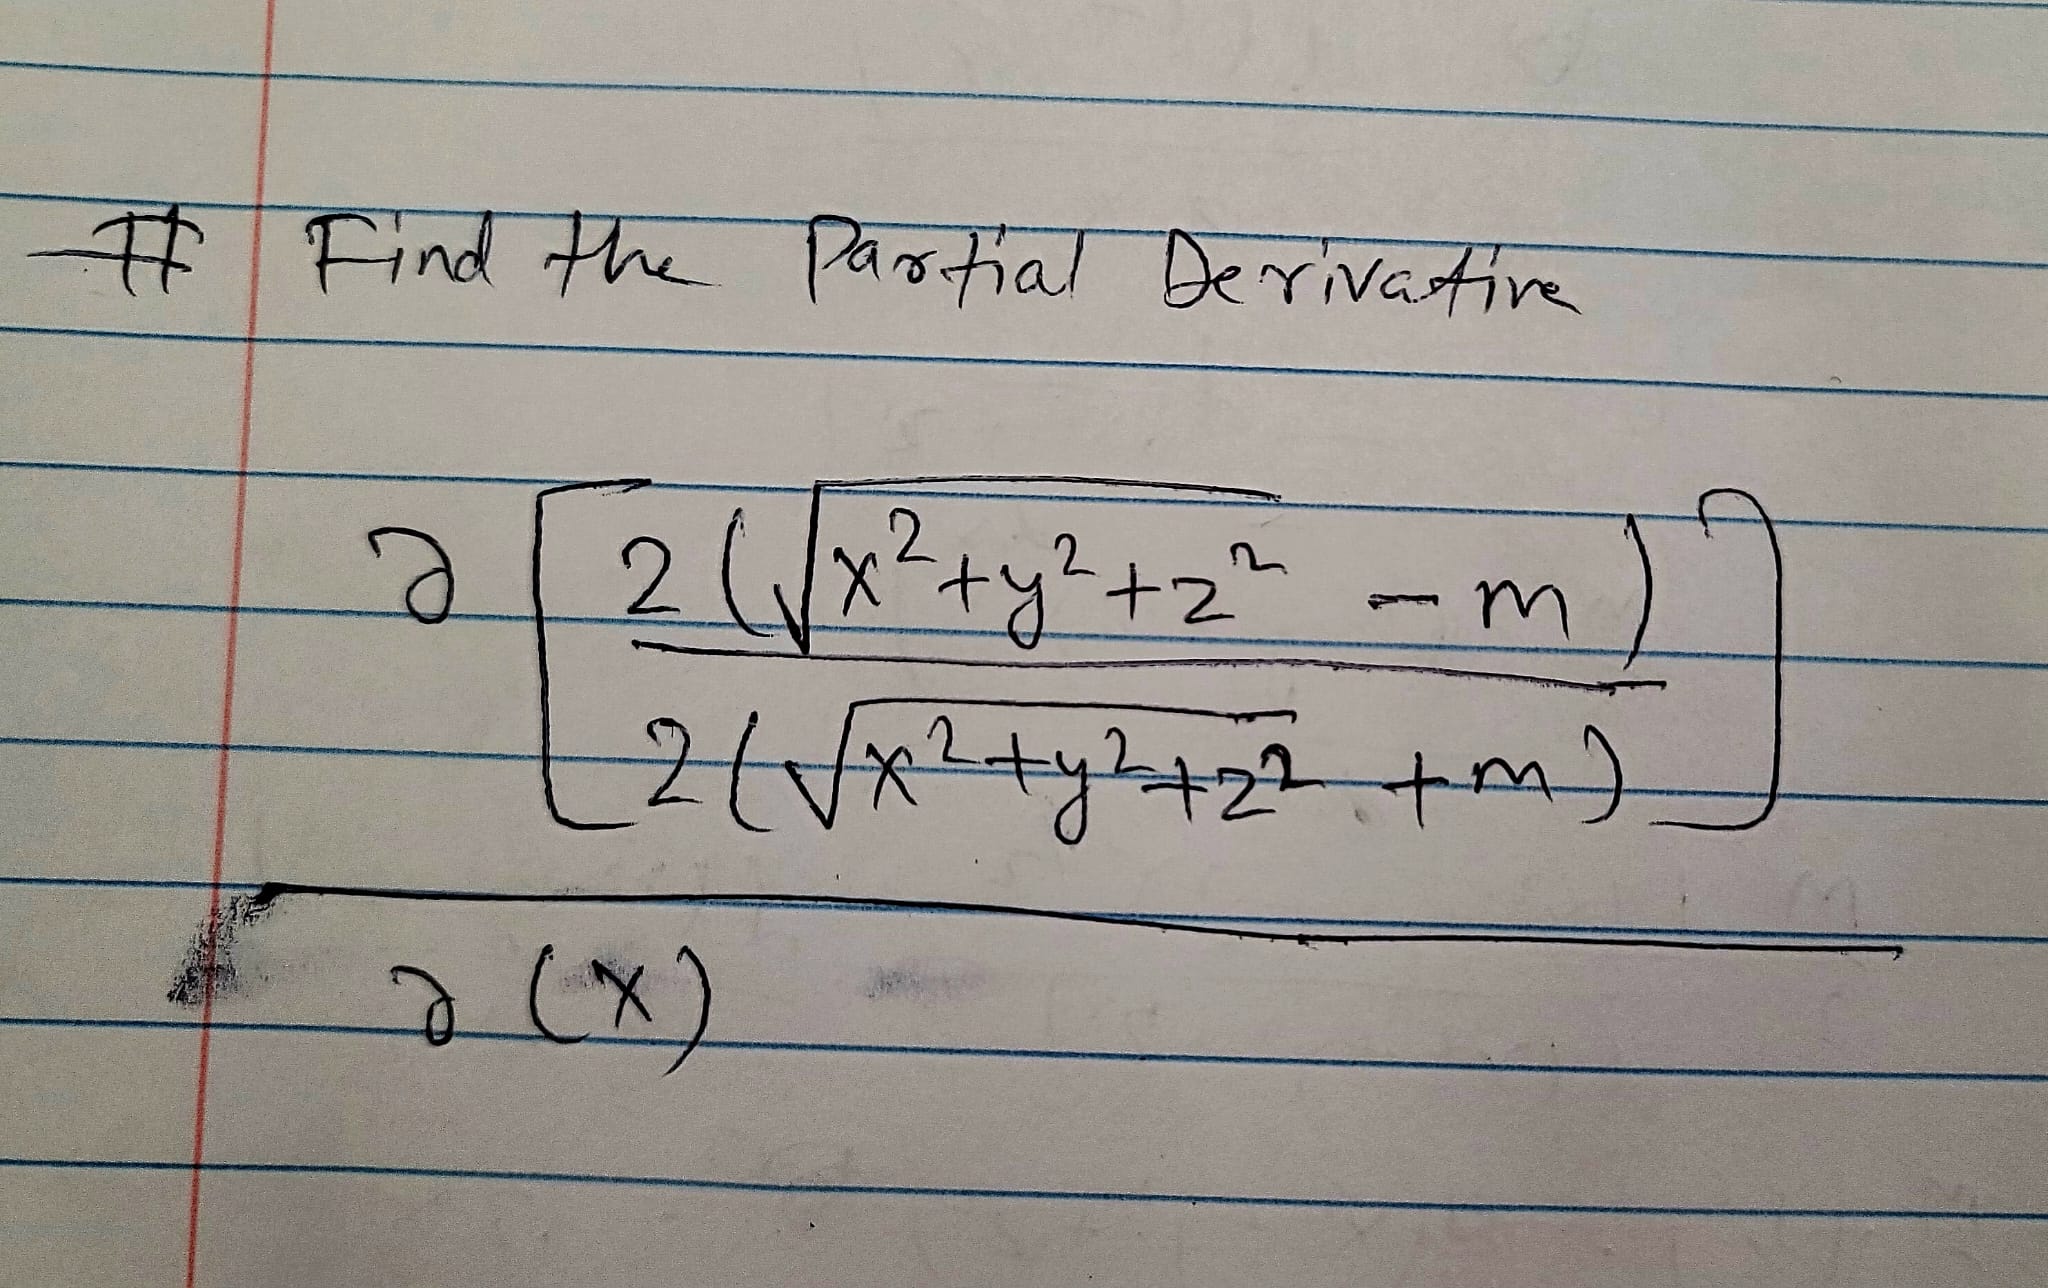 # Find the Partial Derivative
∂ [ 2 (√x²+y²+z² - m)
2 (√x²+y²+z² + m) ]
∂ (x)